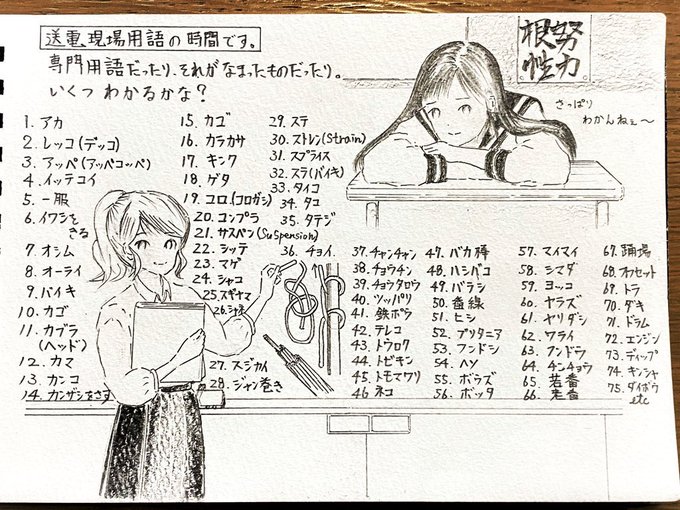 送電現場用語の時間です。
専門用語だったり、それがなまったものだったり。
いくつわかるかな?
努力
根性
さっぱり
わかんねぇ〜
1. アカ
2. レッコ(デッコ)
3. アッペ(アッペコッペ)
4. イッテコイ
5. 一服
6. イワシを
きる
7. オシム
8. オーライ
9. バイキ
10. カゴ
11. カブラ
(ヘッド)
12. カマ
13. カンコ
14. カンザシをさす
15. カゴ
16. カラカサ
17. キンク
18. ゲタ
19. コロ(コロガシ)
20. コンプラ
21. サスペン(Suspension)
22. シッテ
23. マゲ
24. シャコ
25. スギヤマ
27. スジカイ
28. ジャン巻き
29. ステ
30. ストレン(Strain)
31. スプライス
32. スラ(バイキ)
33. タイコ
34. タコ
35. タテジ
36. チョイ
37. チャンチャン
38. チョウチン
39. チョウタロウ
40. ツッパリ
41. 鉄ポウ
42. テレコ
43. トウロク
44. トビキン
45. トモマワリ
46. ネコ
47. バカ棒
48. ハシバコ
49. バラシ
50. 番線
51. ヒシ
52. ブリタニア
53. フンドシ
54. ヘソ
55. ボウズ
56. ボッタ
57. マイマイ
58. シマダ
59. ヨッコ
60. ヤラズ
61. ヤリダシ
62. ワライ
63. フンドウ
64. チンチョウ
65. 若番
66. 老番
67. 踊場
68. オフセット
69. トラ
70. ダキ
71. ドラム
72. エンジン
73. ディップ
74. キンシャ
75. ダイボウ
etc